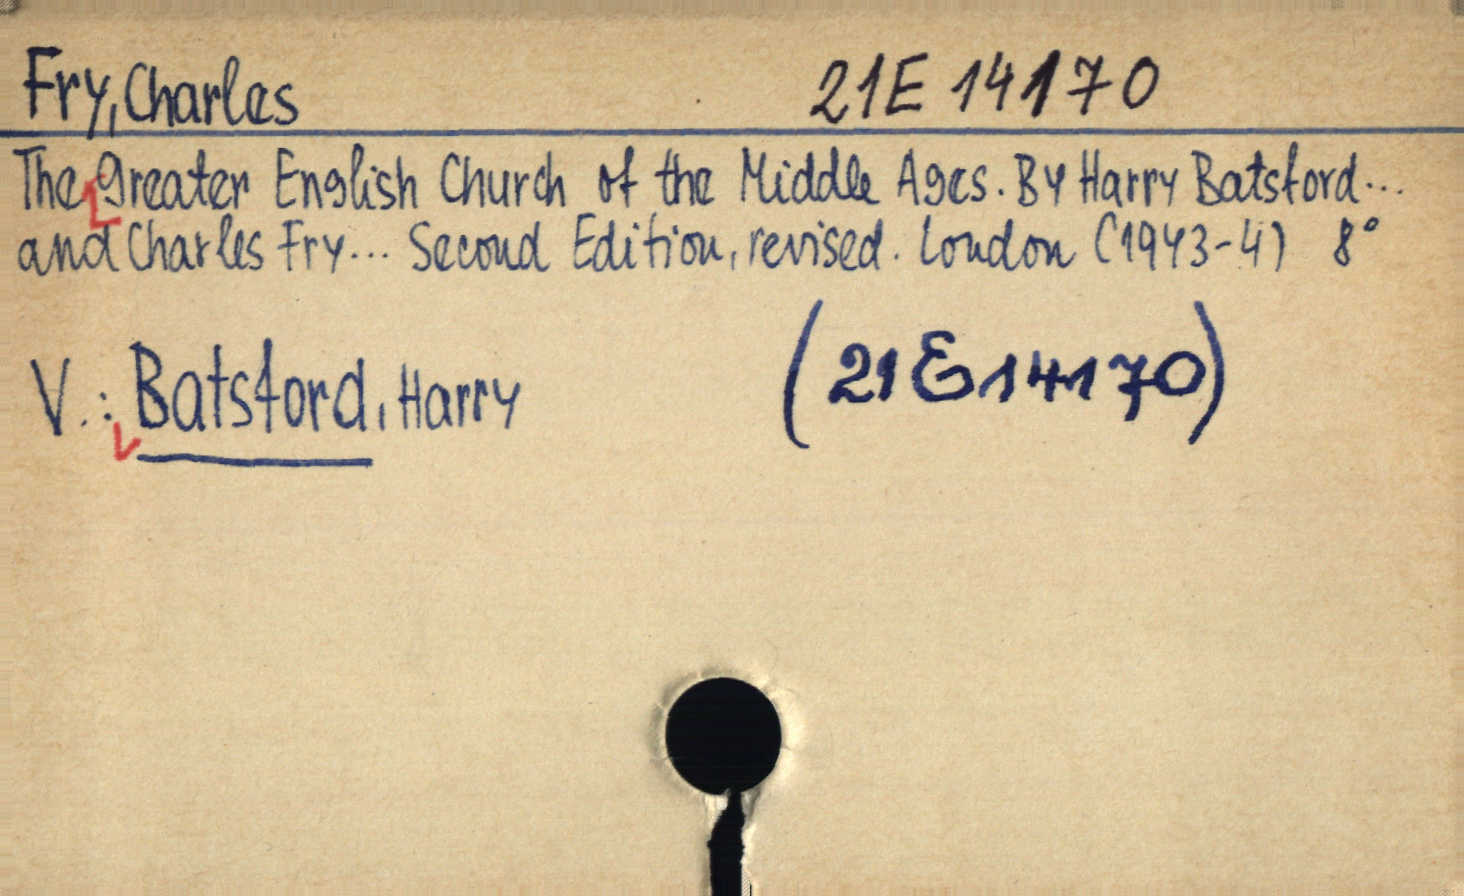 Fry, Charles 21E 14170
The greater English Church of the Middle Ages. By Harry Batsford...
and Charles Fry... Second Edition, revised. London (1943-4) 8°
V.: Batsford, Harry (21E14170)